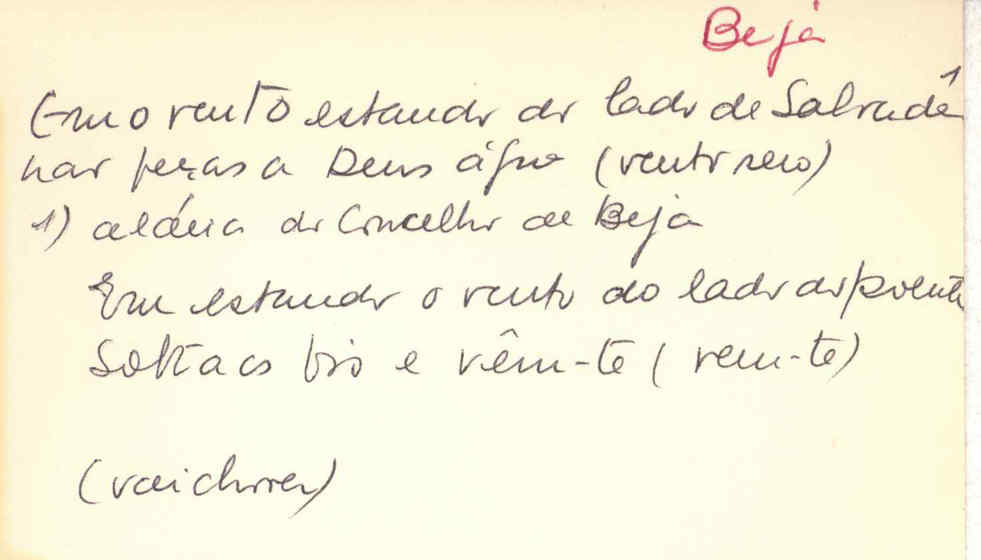 Beja
Em o vento estando do lado de Salvada 1
não peças a Deus água (vento seco)
1) aldeia do Concelho de Beja
Em estando o vento do lado do poente
Solta os e vêm-te (vem-te)
(vai chover)